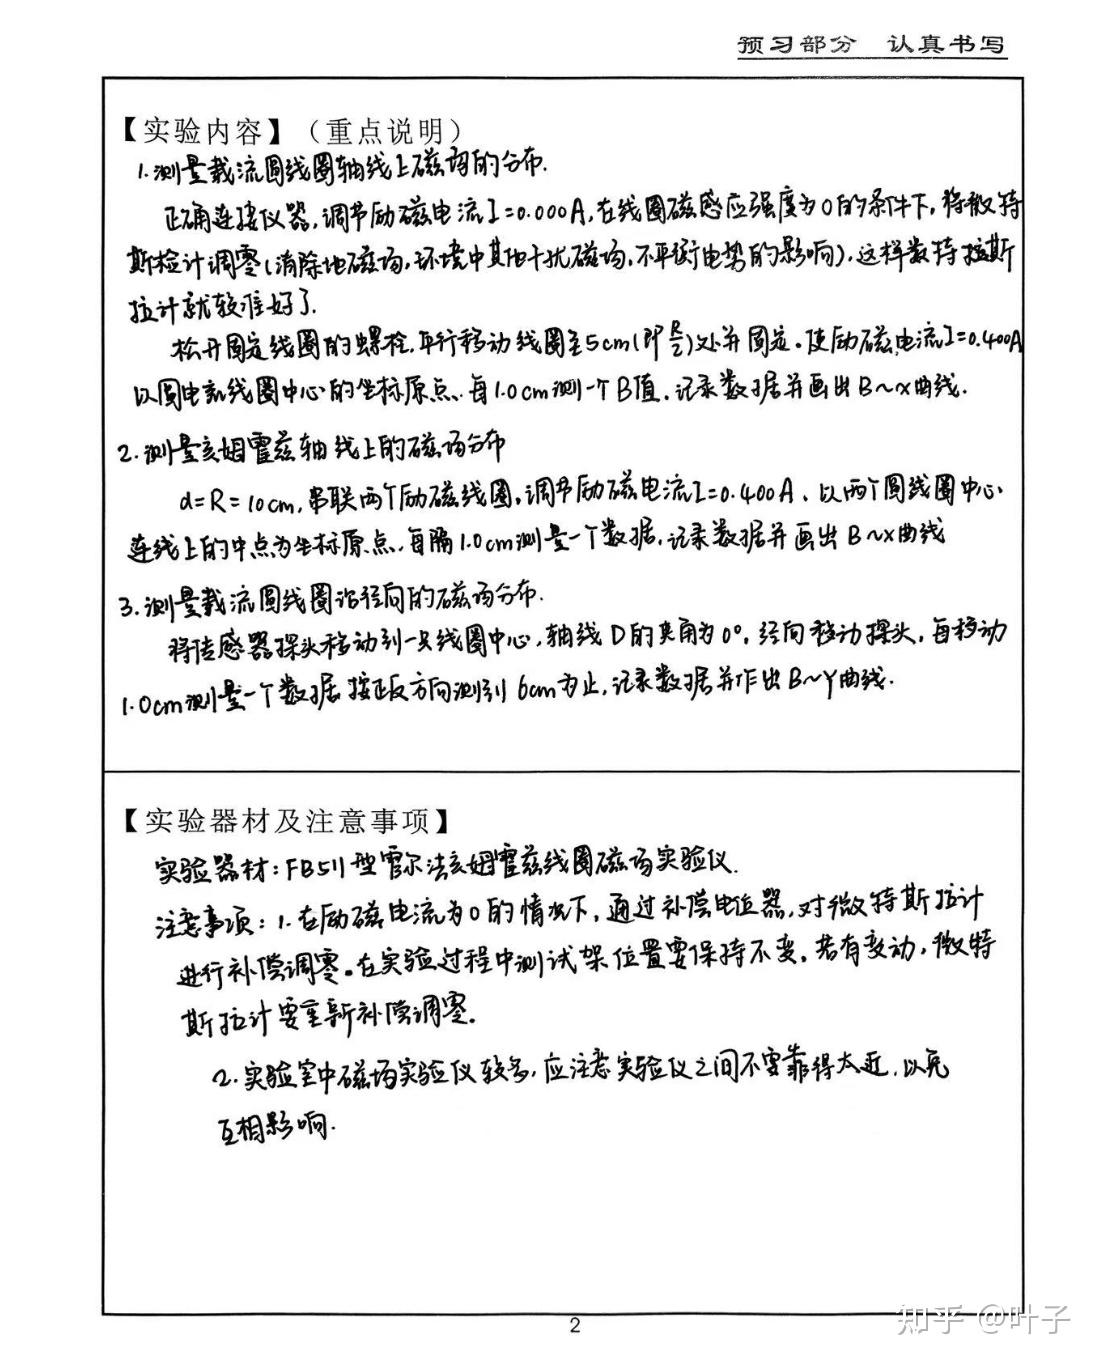 预习部分 认真书写
【实验内容】（重点说明）
1.测量载流圆线圈轴线上磁场的分布.
正确连接仪器,调节励磁电流I=0.000A,在线圈磁感应强度为0的条件下,将微特
斯检计调零(消除地磁场,环境中其他干扰磁场,不平衡电势的影响),这样数特拉斯
拉计就较准好了.
松开固定线圈的螺栓,平行移动线圈至5cm(即R/2)处并固定。使励磁电流I=0.400A
以圆电流线圈中心的坐标原点,每1.0cm测一个B值,记录数据并画出B~x曲线.
2.测量亥姆霍兹轴线上的磁场分布
d=R=10cm,串联两个励磁线圈,调节励磁电流I=0.400A、以两个圆线圈中心
连线上的中点为坐标原点,每隔1.0cm测量一个数据,记录数据并画出B~x曲线
3.测量载流圆线圈沿径向的磁场分布.
将传感器探头移动到一只线圈中心,轴线D的夹角为0°,径向移动探头,每移动
1.0cm测量一个数据 按正反方向测到6cm为止,记录数据并作出B~Y曲线.
【实验器材及注意事项】
实验器材:FB511型霍尔法亥姆霍兹线圈磁场实验仪.
注意事项:1.在励磁电流为0的情况下,通过补偿电位器,对微特斯拉计
进行补偿调零。在实验过程中测试架位置要保持不变。若有变动,微特
斯拉计要重新补偿调零.
2.实验室中磁场实验仪较多,应注意实验仪之间不要靠得太近,以免
互相影响.
2
知乎 @叶子